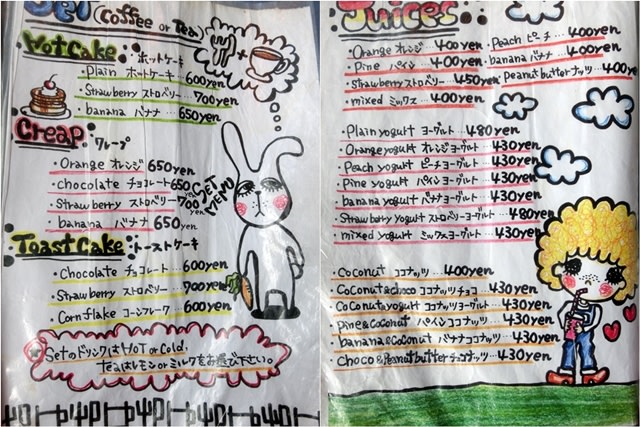 Set (Coffee or Tea)
Hot Cake ホットケーキ
Plain ホートケーキ 600yen
Strawberry ストロベリー 700yen
banana バナナ 650yen
Creap クレープ
Orange オレンジ 650yen
chocolate チョコレート 650
Strawberry ストロベリー 700yen
banana バナナ 650yen
SET MENU
Toast Cake トーストケーキ
Chocolate チョコレート ... 600yen
Strawberry ストロベリー ... 700yen
Cornflake コーンフレーク 600yen
SetのドリンクはHOT or Cold,
teaはレモン or ミルクをお選び下さい。
Juices
Orange オレンジ 400yen
Pine パイン 400yen
Strawberry ストロベリー 450yen
mixed ミックス 400yen
Peach ピーチ ... 400yen
banana バナナ 400yen
Peanut butter ナッツ 400
Plain yogurt ヨーグルト ... 480yen
Orange yogurt オレンジヨーグルト ... 430yen
Peach yogurt ピーチヨーグルト ... 430yen
Pine yogurt パインヨーグルト ... 430yen
banana yogurt バナナヨーグルト ... 430yen
Strawberry yogurt ストロベリーヨーグルト 480yen
mixed yogurt ミックスヨーグルト ... 430yen
Coconut ココナッツ ... 400yen
Coconut&choco ココナッツチョコ ... 430yen
Coconut yogurt ココナッツヨーグルト ... 430yen
pine&coconut パインココナッツ ... 430yen
banana&coconut バナナココナッツ ... 430yen
Choco&Peanut butter チョコナッツ ... 430yen